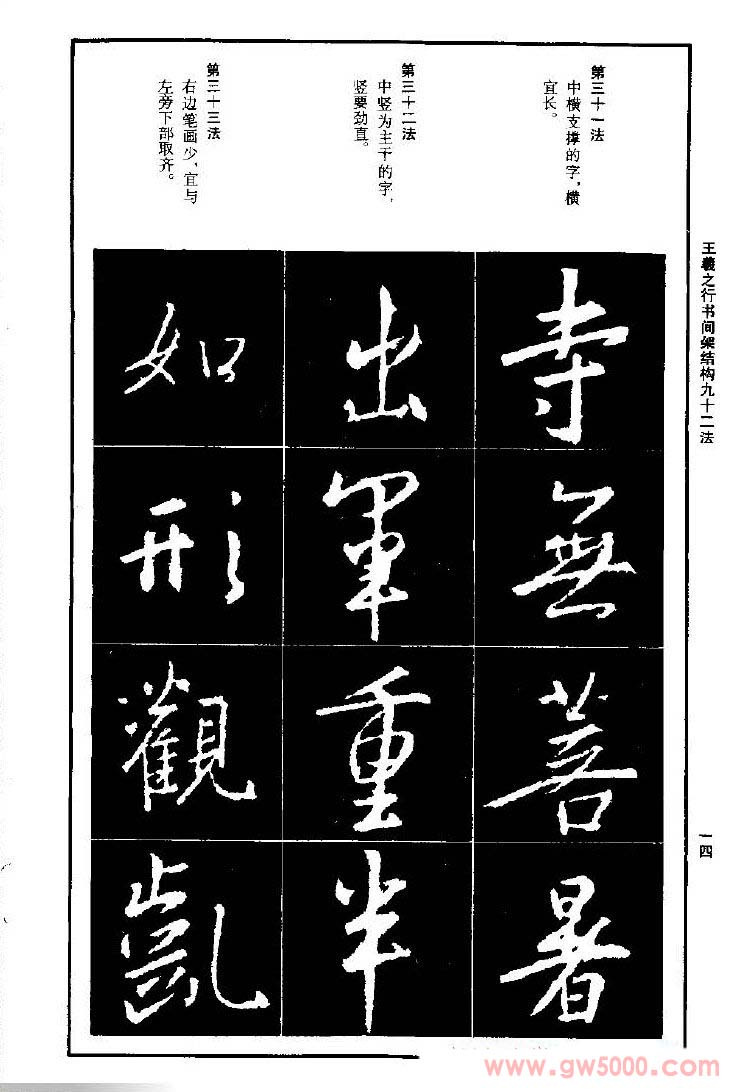 王羲之行书间架结构九十二法
一四
第三十一法
中横支撑的字，横
宜长。
寺
無
菩
暑
第三十二法
中竖为主干的字，
竖要劲直。
出
軍
重
半
第三十三法
右边笔画少，宜与
左旁下部取齐。
如
形
觀
凱
www.gw5000.com